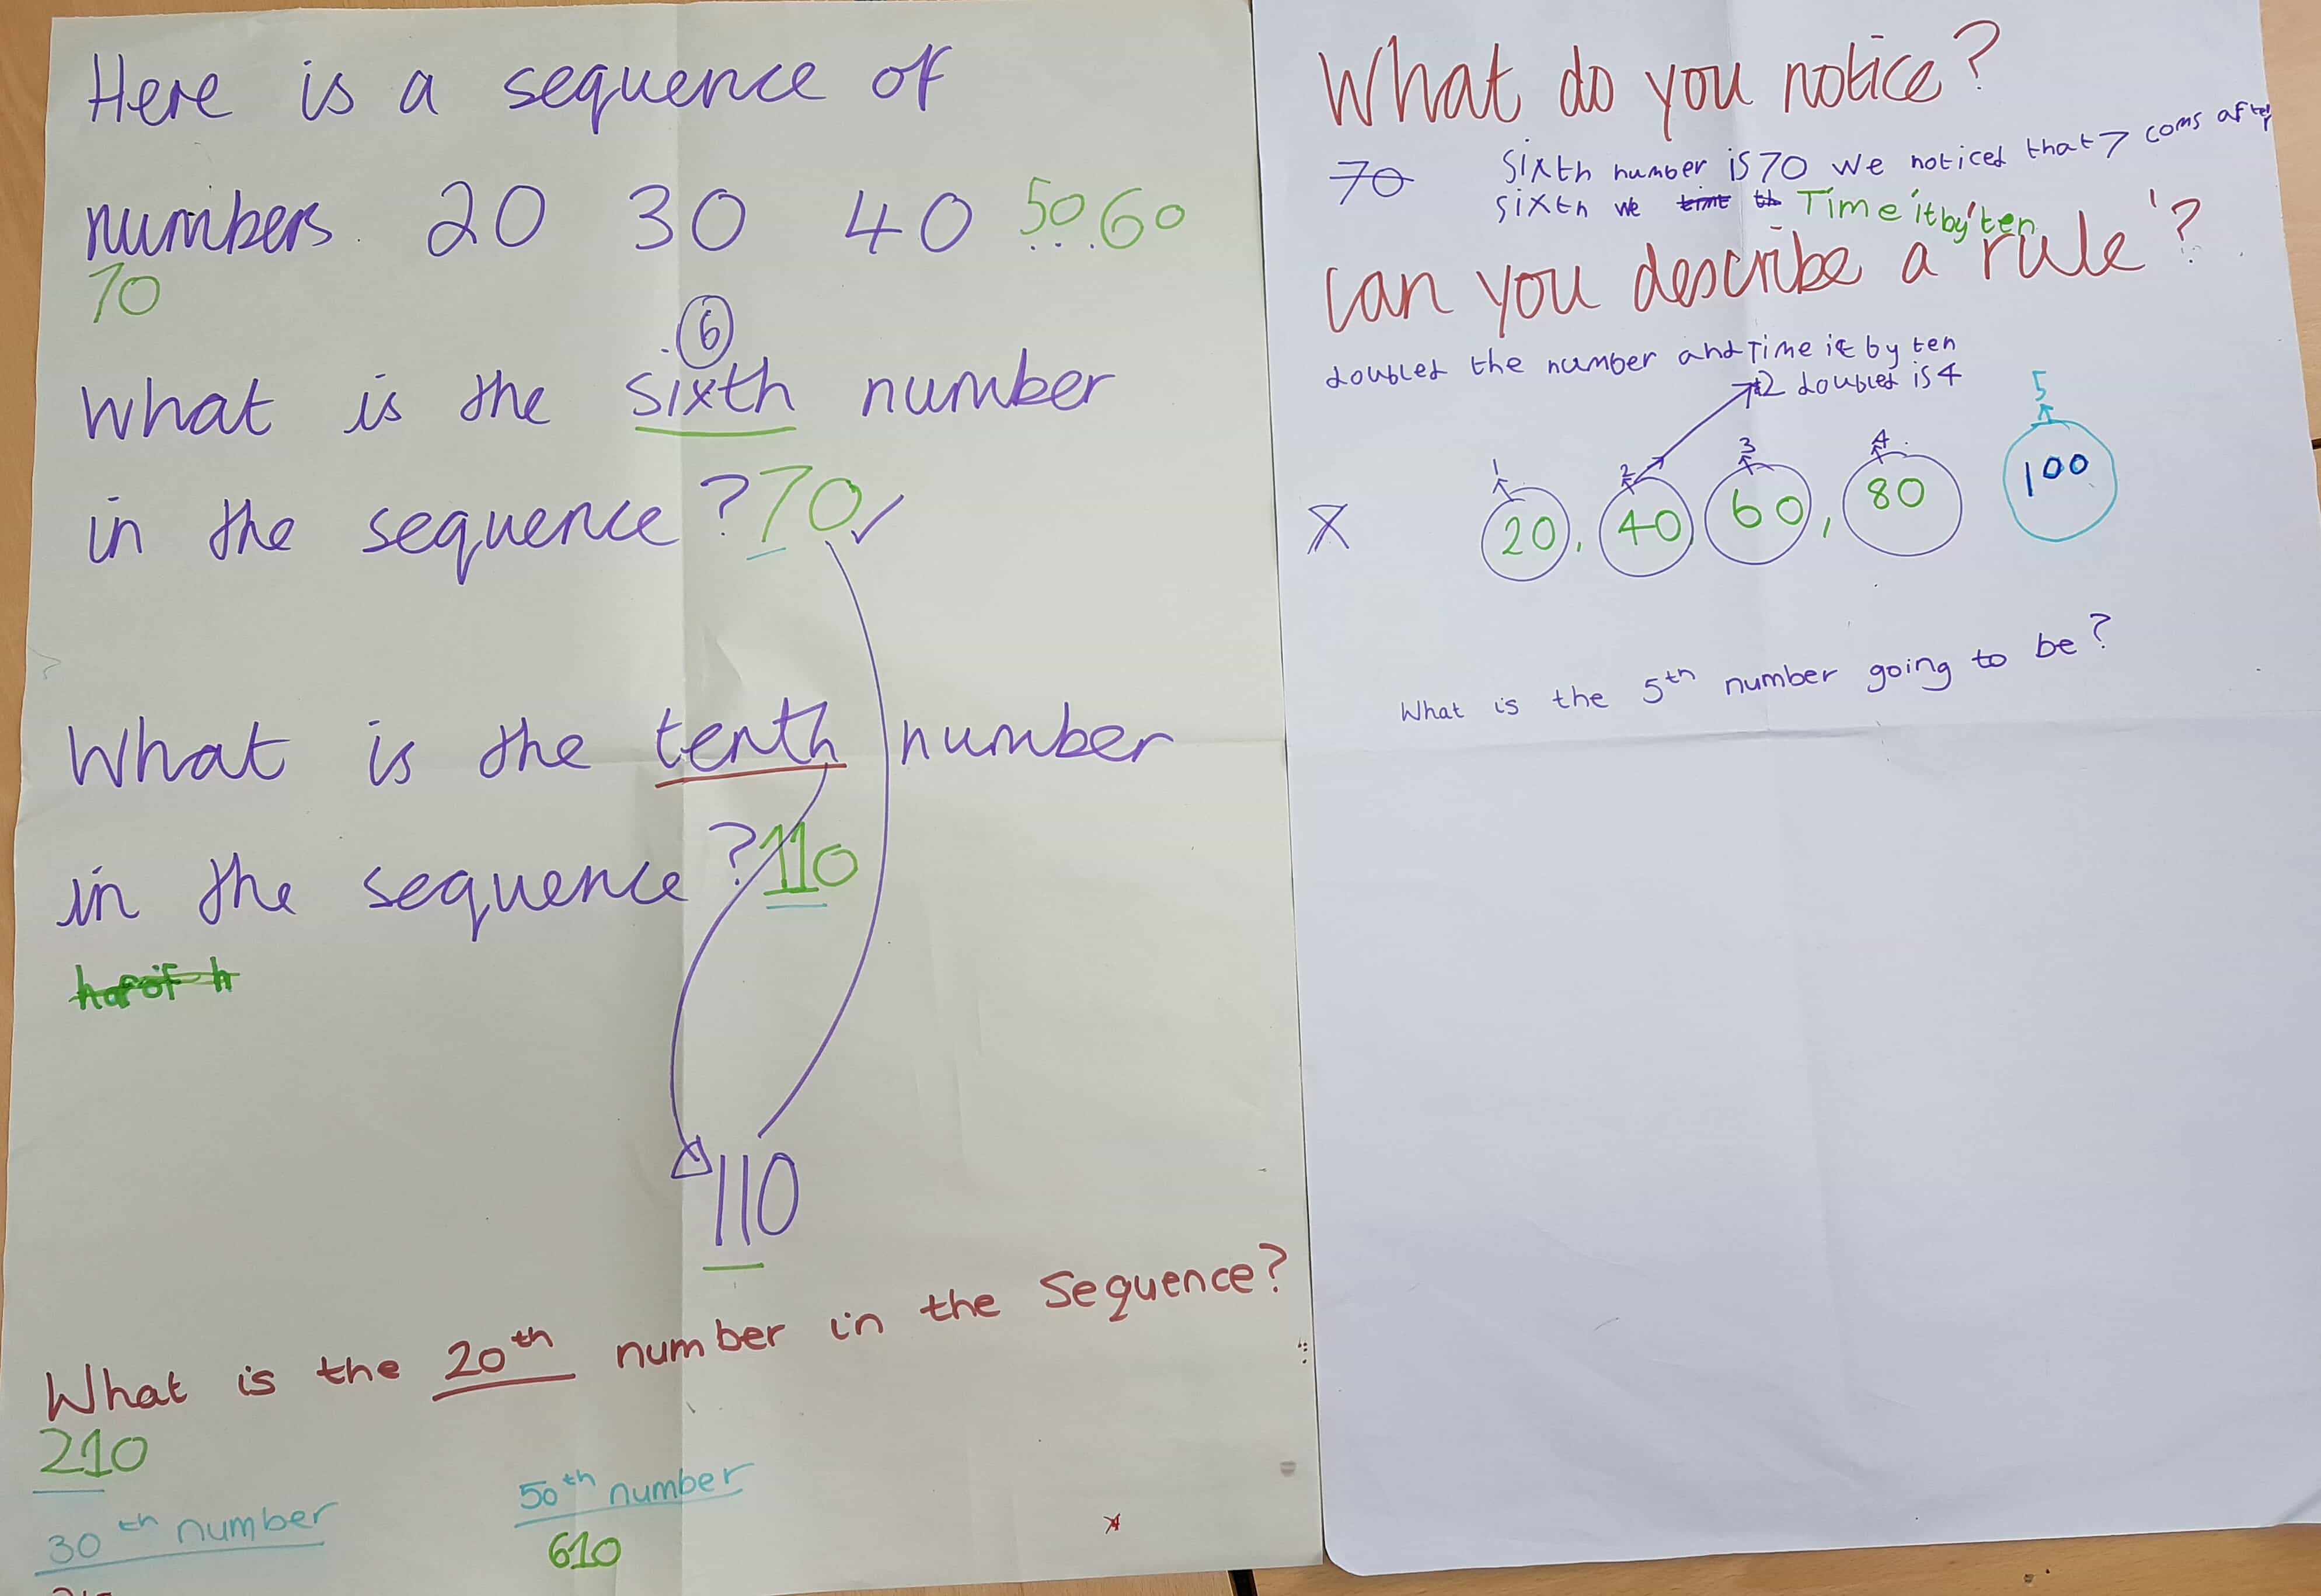 Here is a sequence of
numbers 20 30 40 50...60
70
6
What is the sixth number
in the sequence? 70 ✓
What is the tenth number
in the sequence? 110
110
What is the 20th number in the Sequence?
210
30th number
50th number
610
What do you notice?
70 sixth number is 70 we noticed that 7 coms after
sixth we time th Time it by ten
can you describe a 'rule'?
doubled the number and Time it by ten
2 doubled is 4
1 2 3 4 5
20, 40, 60, 80 100
What is the 5th number going to be?